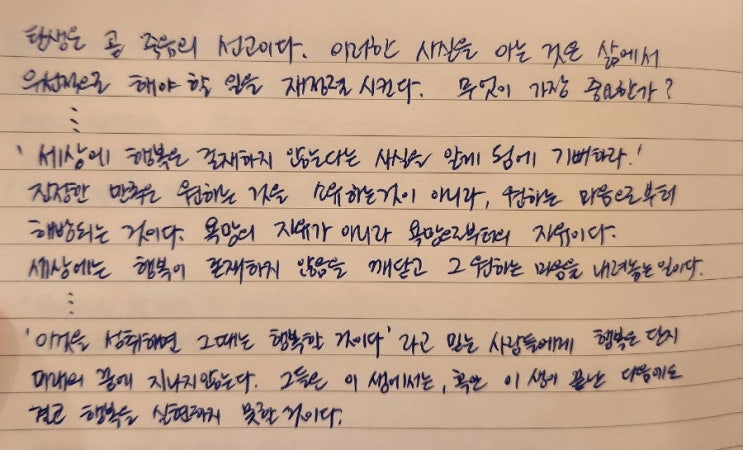 탄생은 곧 죽음의 선고이다. 이러한 사실을 아는 것은 삶에서
우선적으로 해야 할 일을 재정렬 시킨다. 무엇이 가장 중요한가?
⋮
'세상에 행복은 존재하지 않는다는 사실을 알게 됨에 기뻐하라.'
진정한 만족은 원하는 것을 소유하는것이 아니라, 원하는 마음으로부터
해방되는 것이다. 욕망의 자유가 아니라 욕망으로부터의 자유이다.
세상에는 행복이 존재하지 않음을 깨닫고 그 원하는 마음을 내려놓는 일이다.
⋮
'이것을 성취하면 그때는 행복할 것이다' 라고 믿는 사람들에게 행복은 단지
미래의 꿈에 지나지않는다. 그들은 이 생에서는, 혹은 이 생이 끝난 다음에도
결코 행복을 실현하지 못할 것이다.